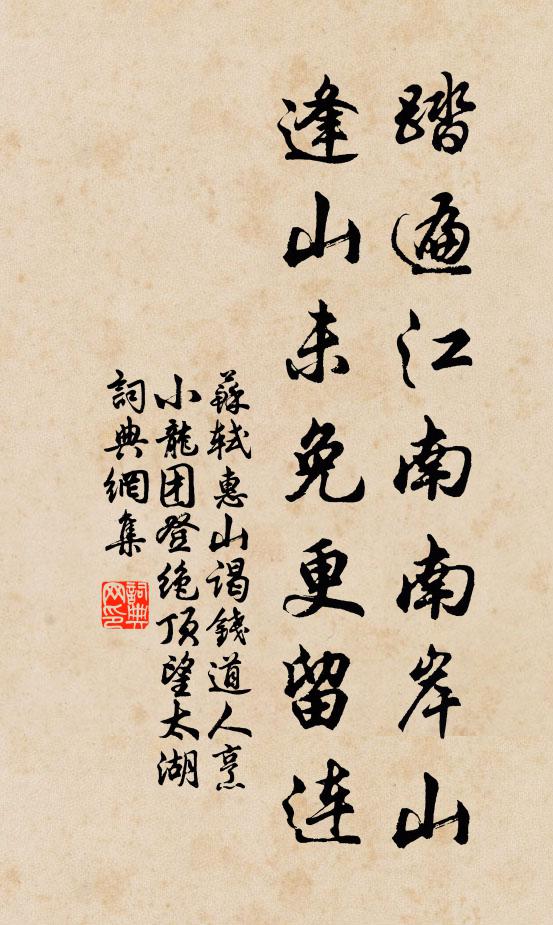 踏遍江南南岸山
逢山未免更留連
蘇軾惠山謁錢道人烹
小龍团登绝頂望太湖
詞典網集
詞典
网印